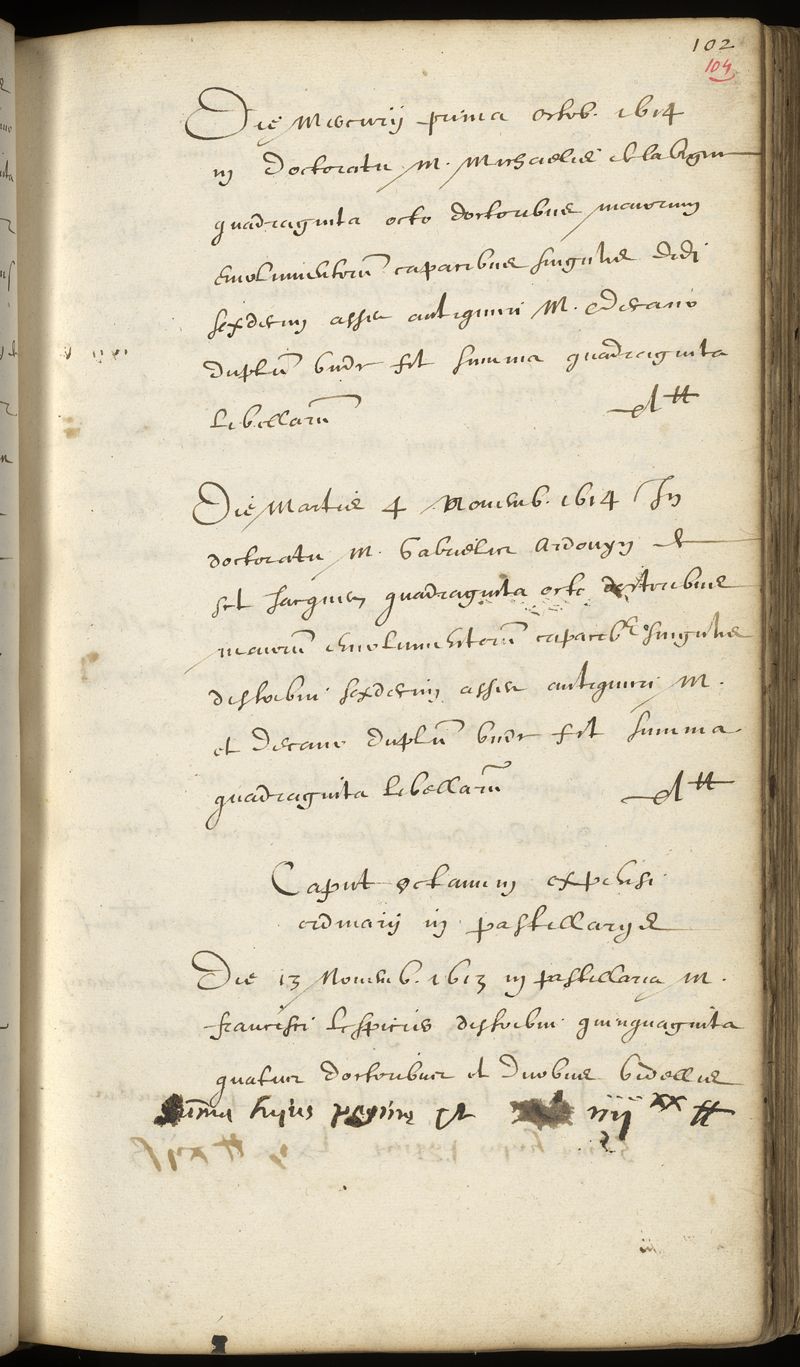 102
104
Die Mercurii prima octob. 1614
in doctoratu M. Michaelis de la Vigne
quadraginta octo doctoribus maiorum
emolumentorũ capacibus singulis dedi
sexdecim asses antiquiori M. et Decano
duplũ unde fit summa quadraginta
libellarũ xl ₶
Die Martis 4 Novemb. 1614 In
doctoratu M. Gabrielis Ardouyn de
sct Jacques quadraginta octo doctoribus
maiorũ emolumentorũ capacib9 singulis
distribui sexdecim asses antiquiori M.
et Decano duplũ unde fit summa
quadraginta libellarũ xl ₶
Caput octauum expensi
ordinarij in pastillarijs
Die 13 Novemb. 1613 in pastillaria M.
francisci Lespicier distribui quinquaginta
quatuor doctoribus et duobus bidellis
Sum̃a hujus paginę est iiij xx ₶